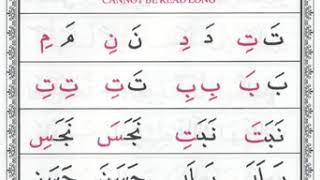 CANNOT BE READ LONG
تَ تِ دَ دِ نَ نِ مَ مِ
بَ بَ بِ بِ تَ تِ تِ تِ
نَبَتَ نَبَتِ نَجَسَ نَجَسِ